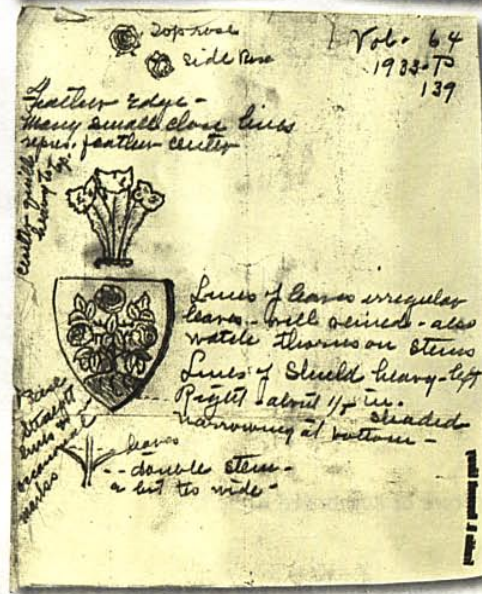 Top rose
Side Rose
Vol. 64
1933-P
139
Feather Edge -
Many small close lines
repres. feather center
center quills
heavy to top.
Lines of leaves irregular
leaves - well veined - also
watch thorns on stems
Lines of Shield heavy - left
Right - about 1/5 in.
shaded
narrowing at bottom -
Base
Straight
lines
occasional
marks
leaves
-- double stem -
a bit to wide -